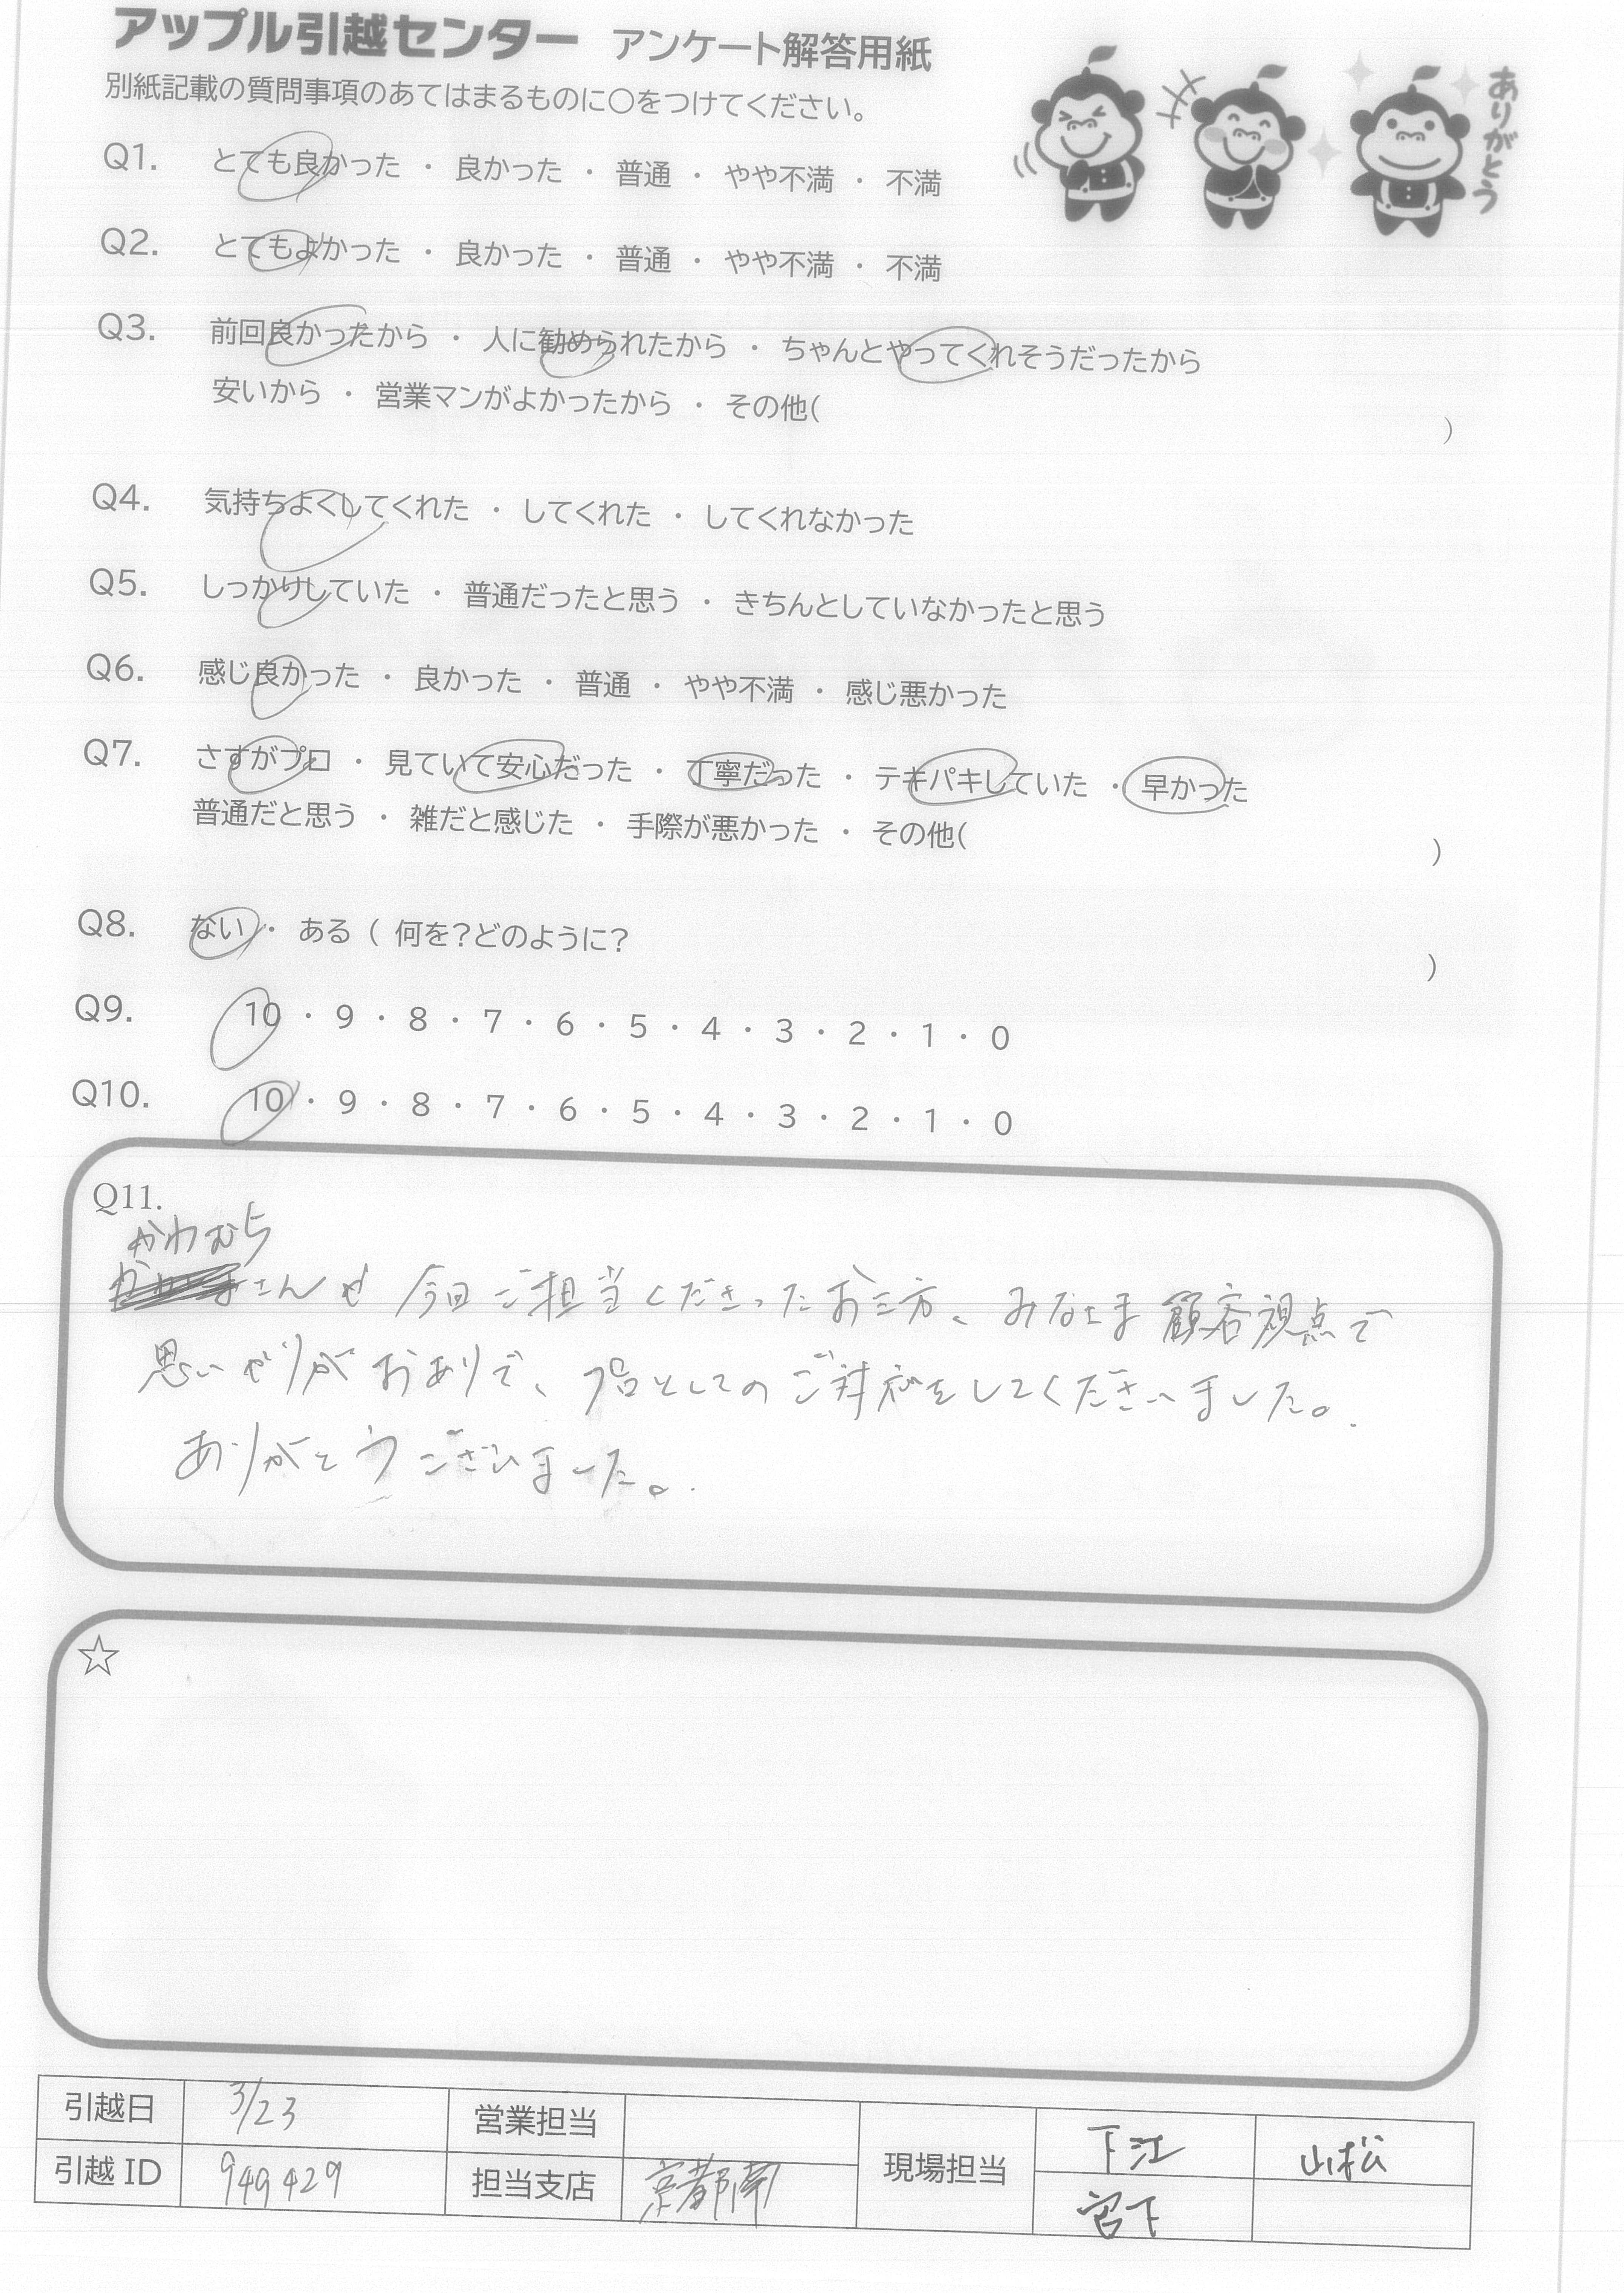 アップル引越センター アンケート解答用紙
別紙記載の質問事項のあてはまるものに○をつけてください。
ありがとう
Q1. とても良かった ・ 良かった ・ 普通 ・ やや不満 ・ 不満
Q2. とてもよかった ・ 良かった ・ 普通 ・ やや不満 ・ 不満
Q3. 前回良かったから ・ 人に勧められたから ・ ちゃんとやってくれそうだったから
安いから ・ 営業マンがよかったから ・ その他( )
Q4. 気持ちよくしてくれた ・ してくれた ・ してくれなかった
Q5. しっかりしていた ・ 普通だったと思う ・ きちんとしていなかったと思う
Q6. 感じ良かった ・ 良かった ・ 普通 ・ やや不満 ・ 感じ悪かった
Q7. さすがプロ ・ 見ていて安心だった ・ 丁寧だった ・ テキパキしていた ・ 早かった
普通だと思う ・ 雑だと感じた ・ 手際が悪かった ・ その他( )
Q8. ない ・ ある ( 何を?どのように? )
Q9. 10 ・ 9 ・ 8 ・ 7 ・ 6 ・ 5 ・ 4 ・ 3 ・ 2 ・ 1 ・ 0
Q10. 10 ・ 9 ・ 8 ・ 7 ・ 6 ・ 5 ・ 4 ・ 3 ・ 2 ・ 1 ・ 0
Q11.
かわむら
さんも 今回ご担当くださったお三方、みなさま 顧客視点で
思いやりがおありで、プロとしてのご対応をしてくださいました。
ありがとうございました。
☆
引越日 3/23 営業担当 現場担当 下江 山松
引越ID 949429 担当支店 京都南 宮下